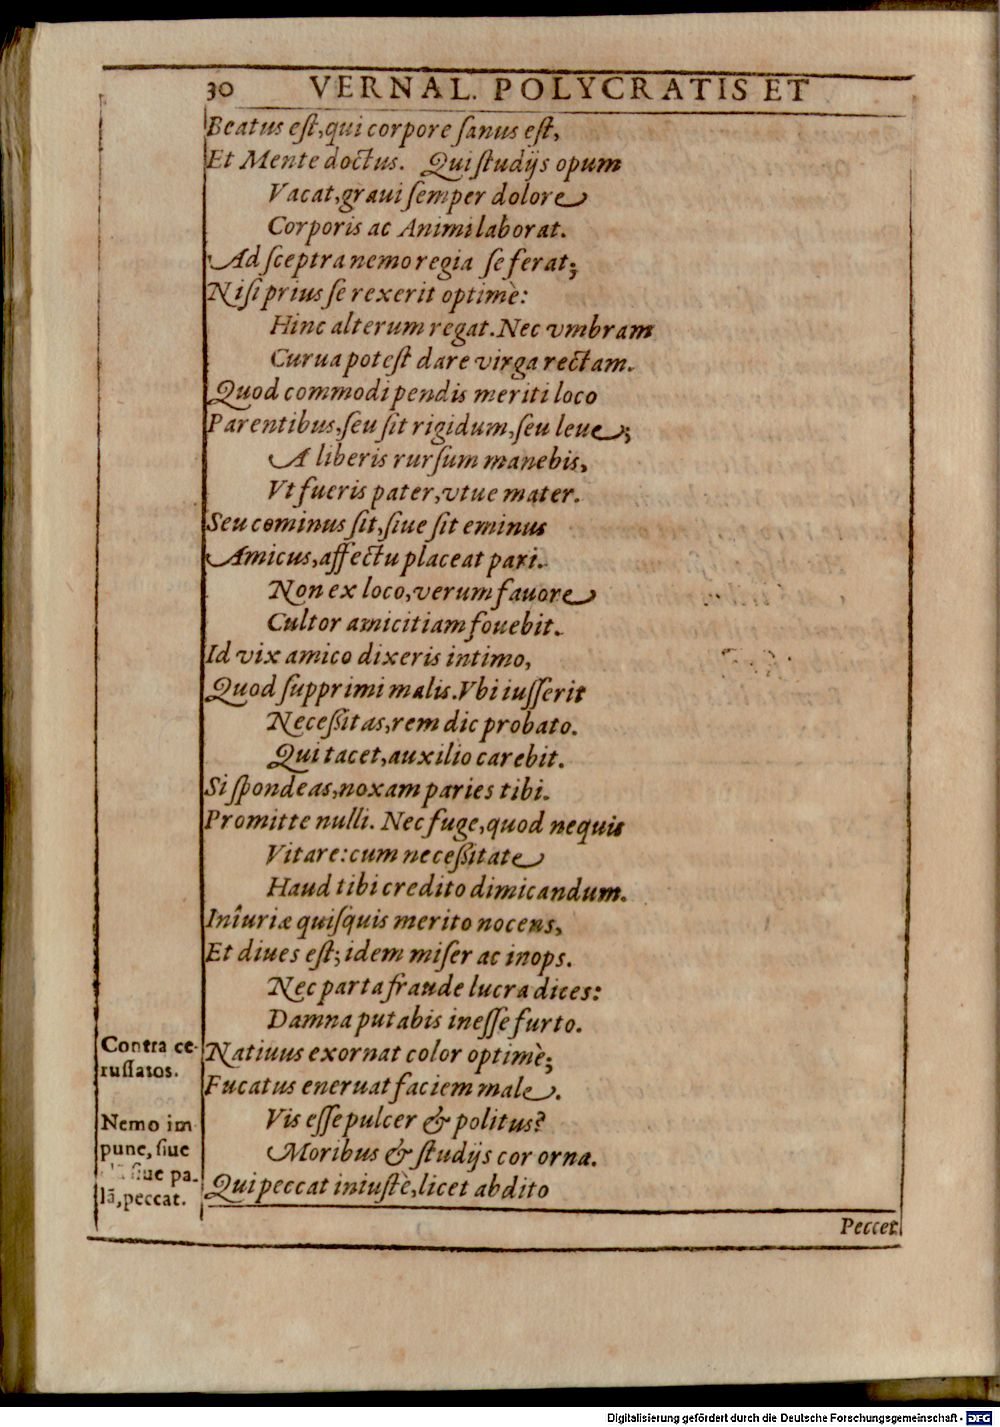 30 VERNAL. POLYCRATIS ET
Beatus eſt, qui corpore ſanus eſt,
Et Mente doctus. Qui ſtudijs opum
Vacat, graui ſemper dolore
Corporis ac Animi laborat.
Ad ſceptra nemo regia ſe ferat;
Niſi prius ſe rexerit optimè:
Hinc alterum regat. Nec vmbram
Curua poteſt dare virga rectam.
Quod commodi pendis meriti loco
Parentibus, ſeu ſit rigidum, ſeu leue;
A liberis rurſum manebis,
Vt fueris pater, vtue mater.
Seu cominus ſit, ſiue ſit eminus
Amicus, affectu placeat pari.
Non ex loco, verum fauore
Cultor amicitiam fouebit.
Id vix amico dixeris intimo,
Quod ſupprimi malis. Vbi iuſſerit
Neceßitas, rem dic probato.
Qui tacet, auxilio carebit.
Si ſpondeas, noxam paries tibi.
Promitte nulli. Nec fuge, quod nequis
Vitare: cum neceßitate
Haud tibi credito dimicandum.
Iniuriæ quiſquis merito nocens,
Et diues eſt; idem miſer ac inops.
Nec parta fraude lucra dices:
Damna putabis ineſſe furto.
Contra ce-
ruſſatos.
Natiuus exornat color optimè;
Fucatus eneruat faciem male.
Vis eſſe pulcer & politus?
Moribus & ſtudijs cor orna.
Nemo im
pune, ſiue
ſiue pa-
lā, peccat.
Qui peccat iniuſtè, licet abdito
Peccet
Digitalisierung gefördert durch die Deutsche Forschungsgemeinschaft - DFG